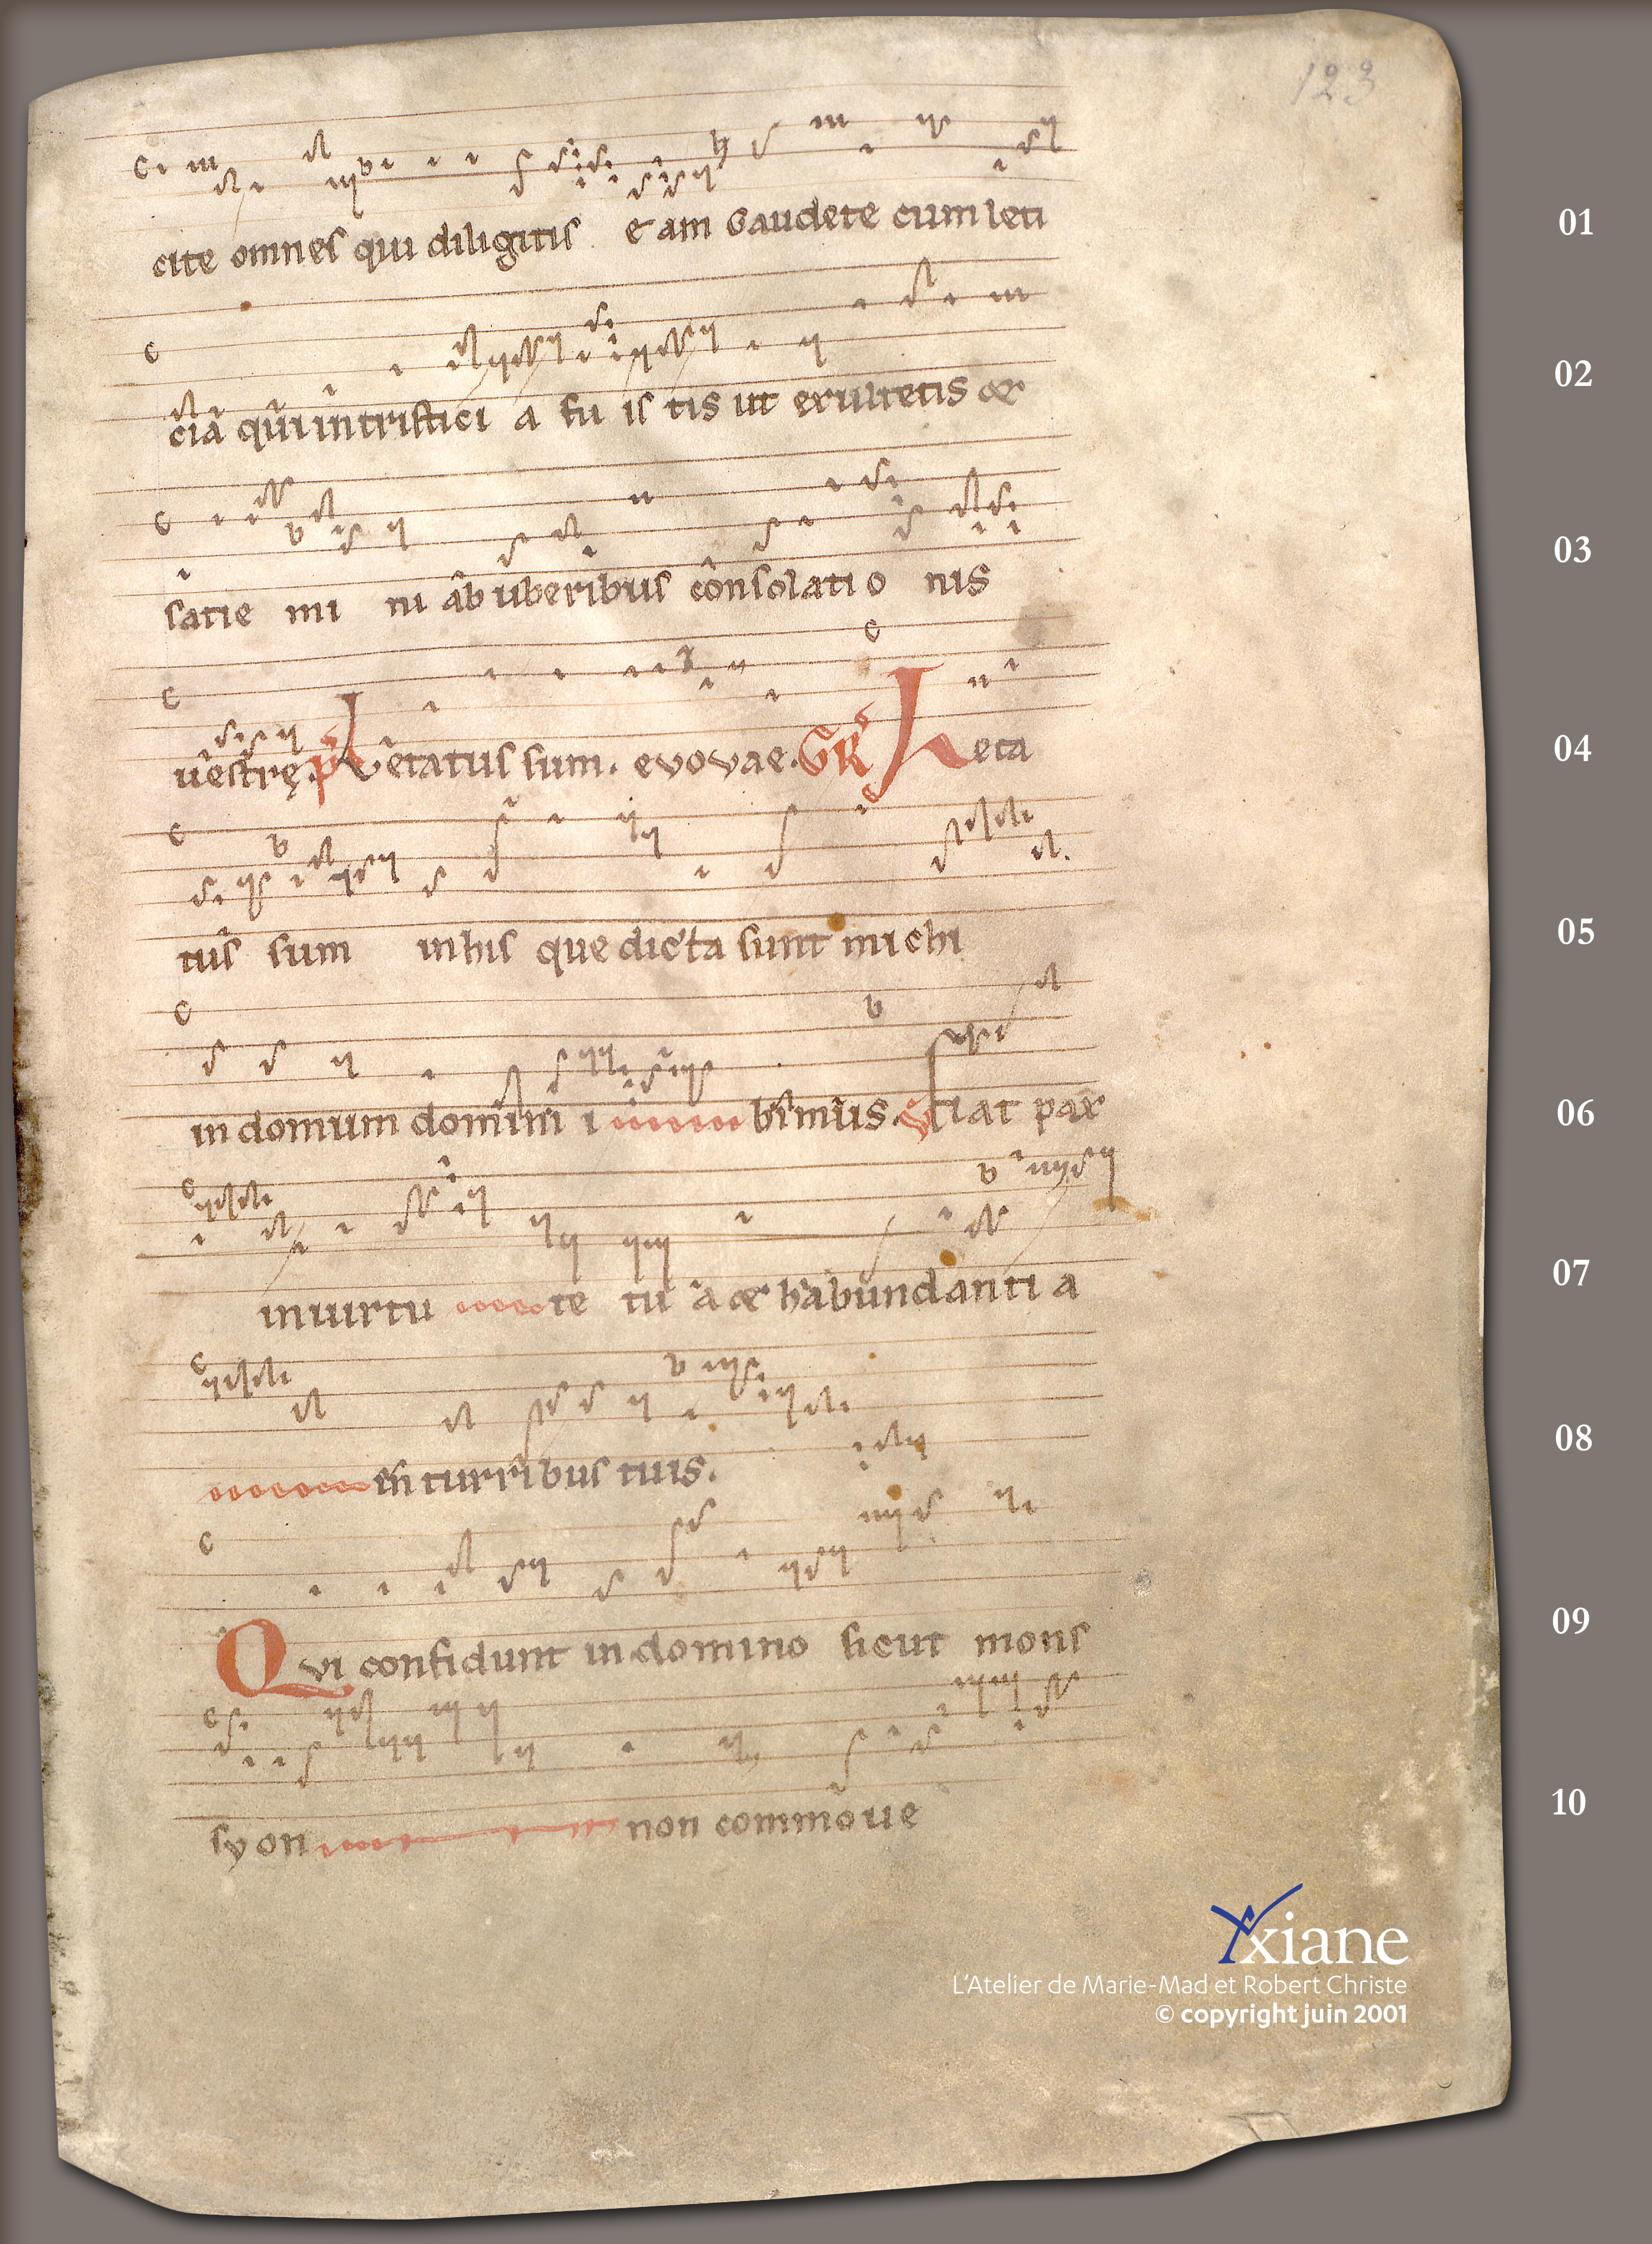 123
cite omnes qui diligitis eam Gaudete cum leti
01
cia qui in tristici a fu is tis ut exultetis et
02
satie mi ni ab uberibus consolatio nis
03
uestrę. p Letatus sum. evovae. GR Leta
04
tus sum in his que dicta sunt michi
05
in domum domini i bimus. V Fiat pax
06
in uirtu te tu a et habundanti a
07
in turribus tuis.
08
Qvi confidunt in domino sicut mons
09
syon non commoue
10
Axiane
L'Atelier de Marie-Mad et Robert Christe
© copyright juin 2001